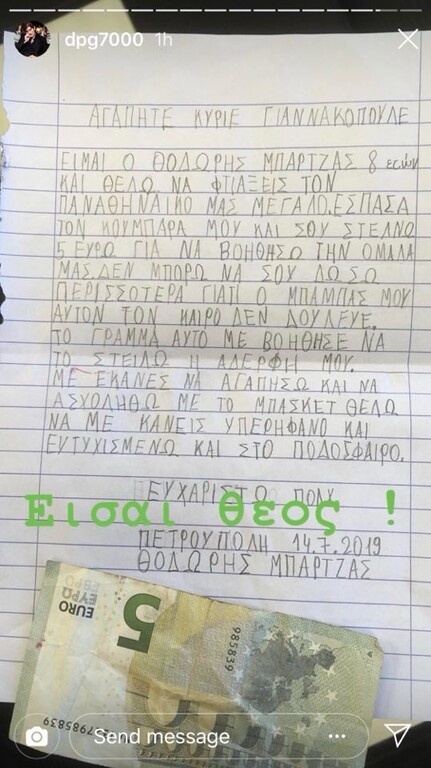 dpg7000 1h
ΑΓΑΠΗΤΕ ΚΥΡΙΕ ΓΙΑΝΝΑΚΟΠΟΥΛΕ
ΕΙΜΑΙ Ο ΘΟΔΩΡΗΣ ΜΠΑΡΤΖΑΣ 8 ετών
ΚΑΙ ΘΕΛΩ ΝΑ ΦΤΙΑΞΕΙΣ ΤΟΝ
ΠΑΝΑΘΗΝΑΙΚΟ ΜΑΣ ΜΕΓΑΛΟ. ΕΣΠΑΣΑ
ΤΟΝ ΚΟΥΜΠΑΡΑ ΜΟΥ ΚΑΙ ΣΟΥ ΣΤΕΛΝΩ
5 ΕΥΡΩ ΓΙΑ ΝΑ ΒΟΗΘΗΣΩ ΤΗΝ ΟΜΑΔΑ
ΜΑΣ. ΔΕΝ ΜΠΟΡΩ ΝΑ ΣΟΥ ΔΩΣΩ
ΠΕΡΙΣΣΟΤΕΡΑ ΓΙΑΤΙ Ο ΜΠΑΜΠΑΣ ΜΟΥ
ΑΥΤΟΝ ΤΟΝ ΚΑΙΡΟ ΔΕΝ ΔΟΥΛΕΥΕ.
ΤΟ ΓΡΑΜΜΑ ΑΥΤΟ ΜΕ ΒΟΗΘΗΣΕ ΝΑ
ΤΟ ΣΤΕΙΛΩ Η ΑΔΕΡΦΗ ΜΟΥ.
ΜΕ ΕΚΑΝΕΣ ΝΑ ΑΓΑΠΗΣΩ ΚΑΙ ΝΑ
ΑΣΧΟΛΗΘΩ ΜΕ ΤΟ ΜΠΑΣΚΕΤ ΘΕΛΩ
ΝΑ ΜΕ ΚΑΝΕΙΣ ΥΠΕΡΗΦΑΝΟ ΚΑΙ
ΕΥΤΥΧΙΣΜΕΝΟ ΚΑΙ ΣΤΟ ΠΟΔΟΣΦΑΙΡΟ.
ΕΥΧΑΡΙΣΤΩ ΠΟΛΥ
Εισαι θεος !
ΠΕΤΡΟΥΠΟΛΗ 14.7.2019
ΘΟΔΩΡΗΣ ΜΠΑΡΤΖΑΣ
EURO
ΕΥΡΩ
ЕВРО
5
985839
7985839
Send message